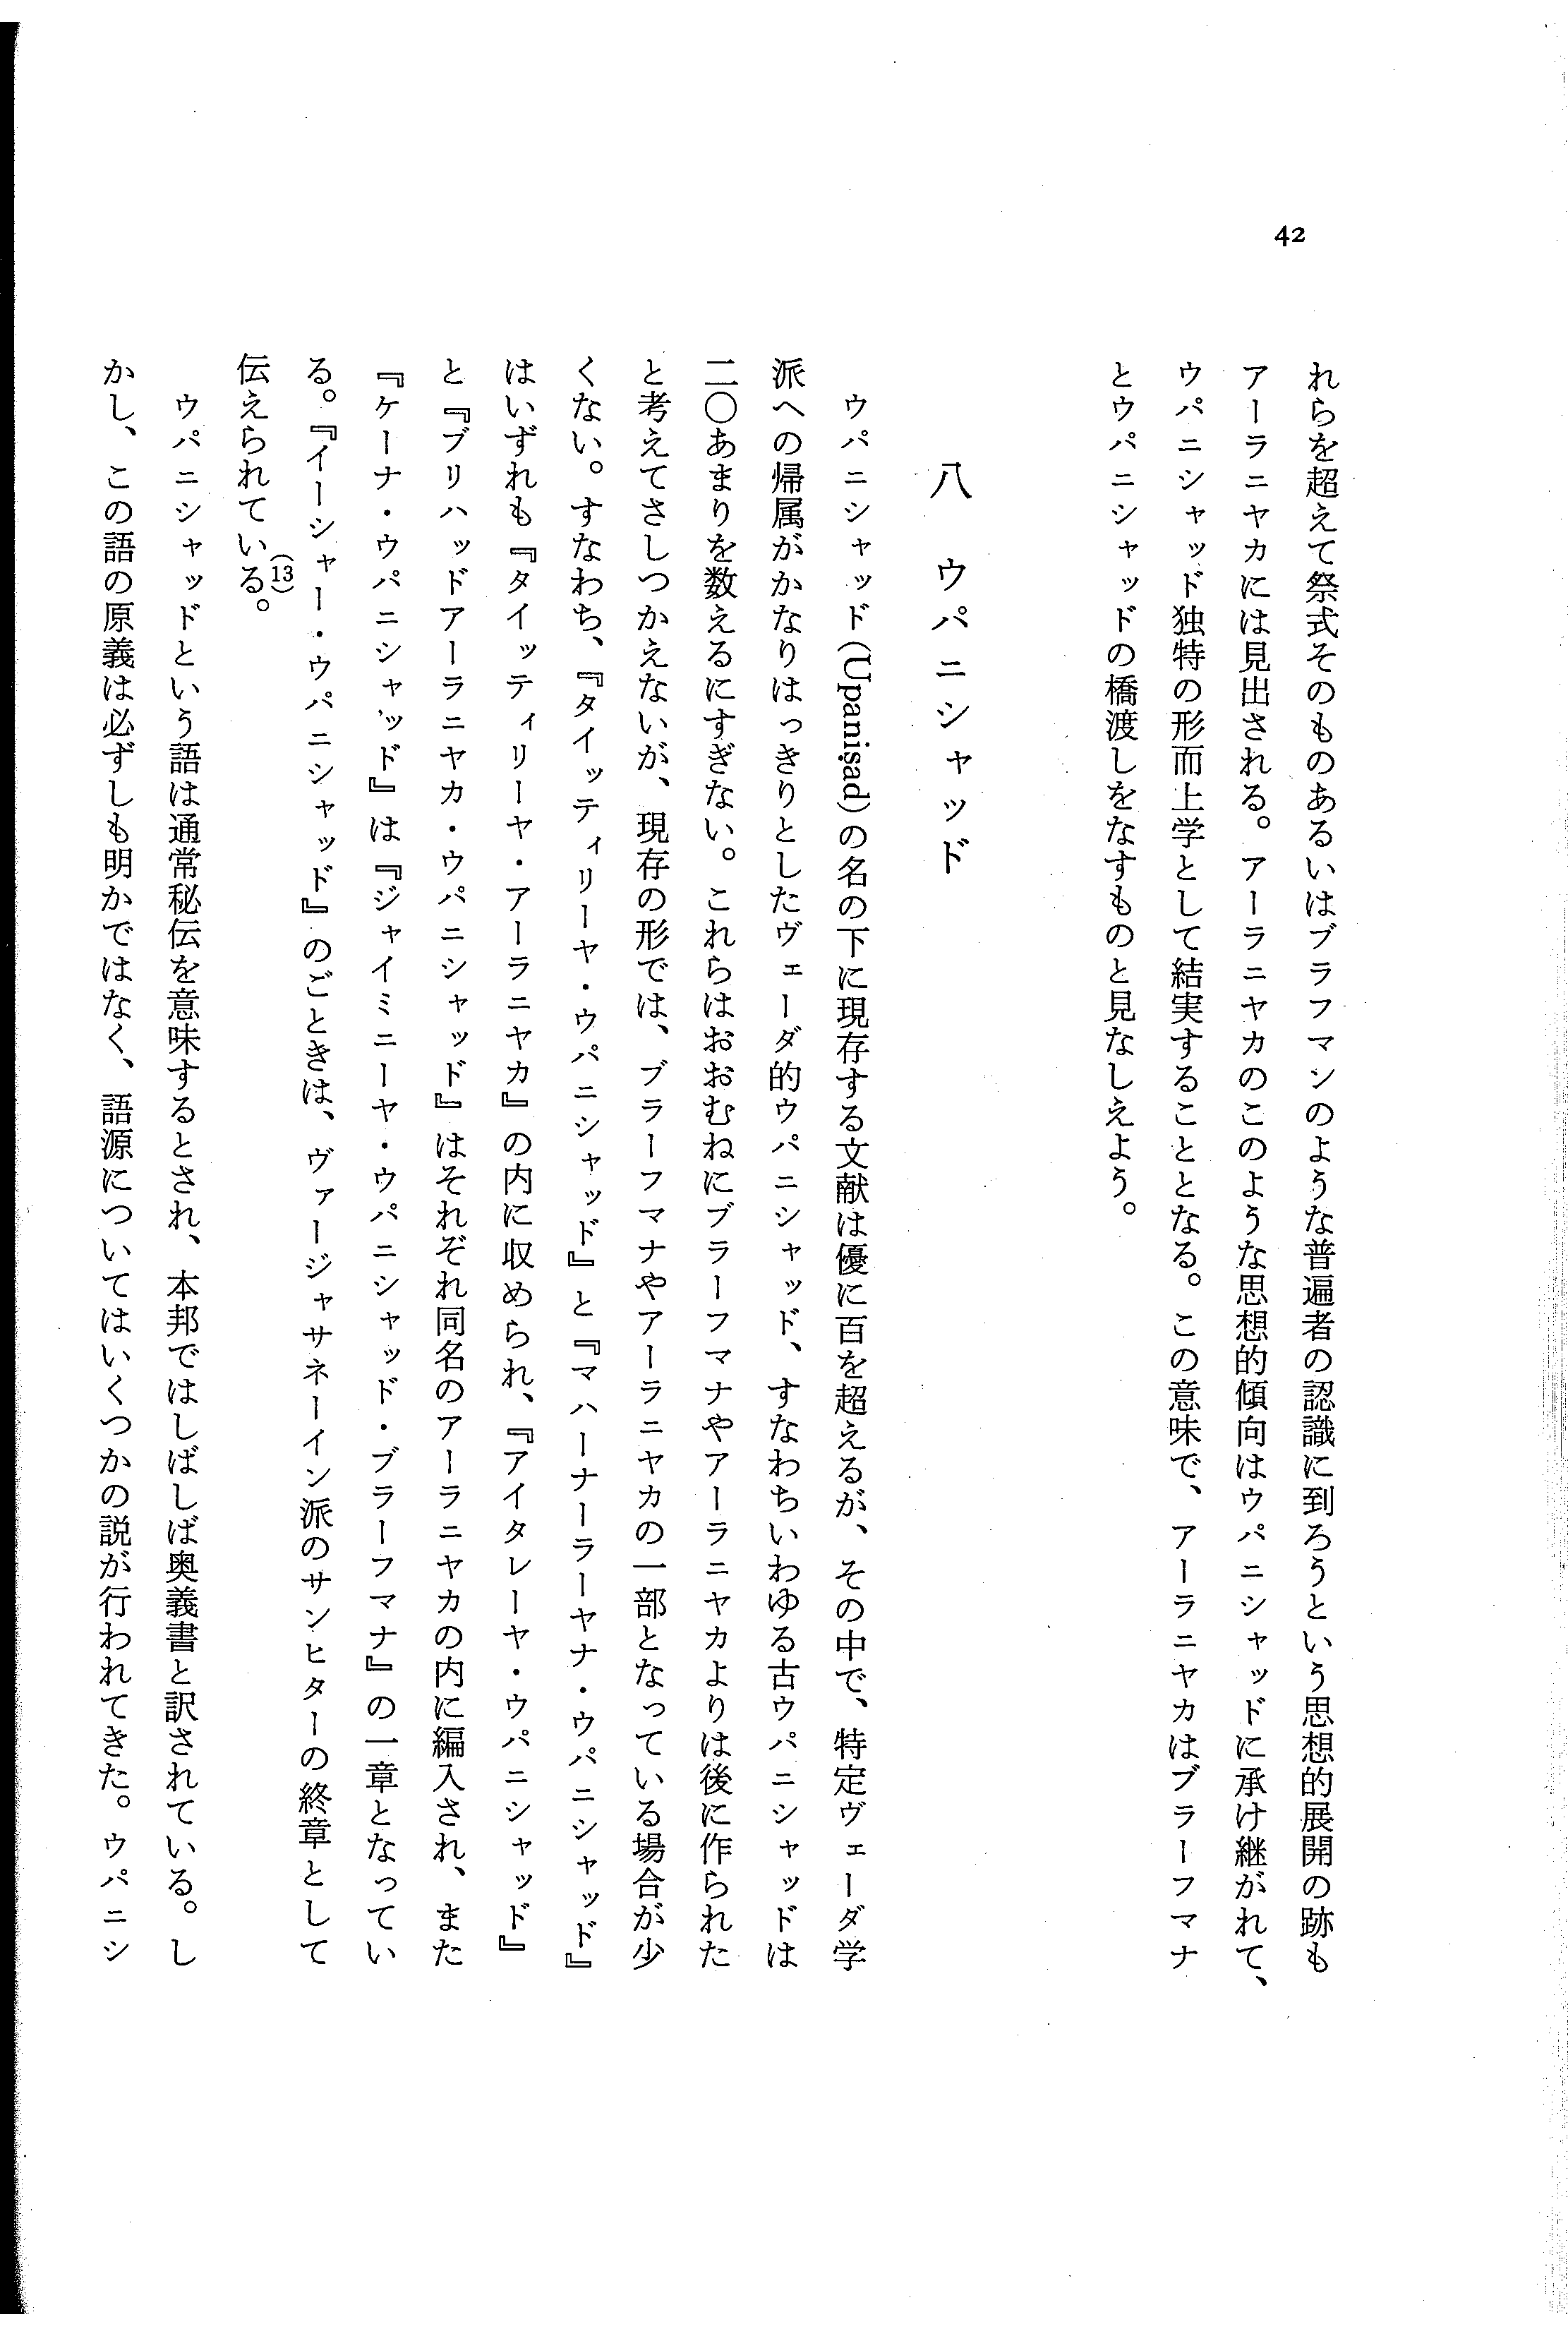 42
れらを超えて祭式そのものあるいはブラフマンのような普遍者の認識に到ろうという思想的展開の跡も
アーラニヤカには見出される。アーラニヤカのこのような思想的傾向はウパニシャッドに承け継がれて、
ウパニシャッド独特の形而上学として結実することとなる。この意味で、アーラニヤカはブラーフマナ
とウパニシャッドの橋渡しをなすものと見なしえよう。
八　ウパニシャッド
ウパニシャッド(Upaniṣad)の名の下に現存する文献は優に百を超えるが、その中で、特定ヴェーダ学
派への帰属がかなりはっきりとしたヴェーダ的ウパニシャッド、すなわちいわゆる古ウパニシャッドは
二〇あまりを数えるにすぎない。これらはおおむねにブラーフマナやアーラニヤカよりは後に作られた
と考えてさしつかえないが、現存の形では、ブラーフマナやアーラニヤカの一部となっている場合が少
くない。すなわち、『タイッティリーヤ・ウパニシャッド』と『マハーナーラーヤナ・ウパニシャッド』
はいずれも『タイッティリーヤ・アーラニヤカ』の内に収められ、『アイタレーヤ・ウパニシャッド』
と『ブリハッドアーラニヤカ・ウパニシャッド』はそれぞれ同名のアーラニヤカの内に編入され、また
『ケーナ・ウパニシャッド』は『ジャイミニーヤ・ウパニシャッド・ブラーフマナ』の一章となってい
る。『イーシャー・ウパニシャッド』のごときは、ヴァージャサネーイン派のサンヒターの終章として
伝えられている。(13)
ウパニシャッドという語は通常秘伝を意味するとされ、本邦ではしばしば奥義書と訳されている。し
かし、この語の原義は必ずしも明かではなく、語源についてはいくつかの説が行われてきた。ウパニシ